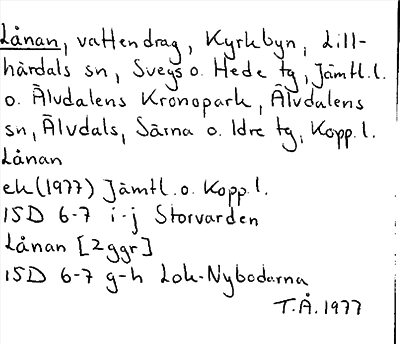 Lånan, vattendrag, Kyrkbyn, Lill-
härdals sn, Svegs o. Hede tg, Jämtl.l.
o. Älvdalens Kronopark, Älvdalens
sn, Älvdals, Särna o. Idre tg, Kopp.l.
Lånan
ek (1977) Jämtl. o. Kopp.l.
15D 6-7 i-j Storvarden
Lånan [2ggr]
15D 6-7 g-h Lok-Nybodarna
T.Å. 1977